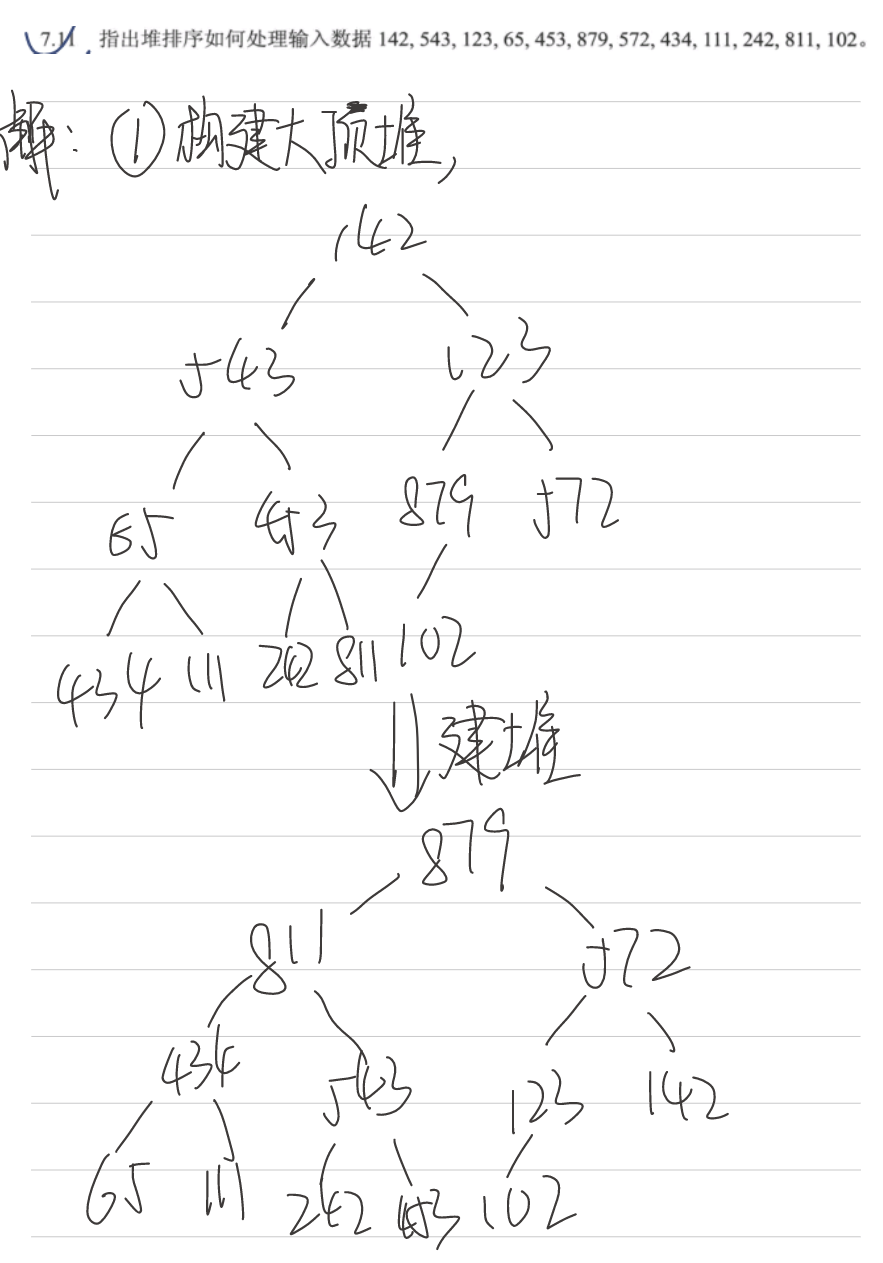 7.11 指出堆排序如何处理输入数据 142, 543, 123, 65, 453, 879, 572, 434, 111, 242, 811, 102。
解：① 构建大顶堆,
142
543 123
65 453 879 572
434 111 242 811 102
建堆
879
811 572
434 543 123 142
65 111 242 453 102